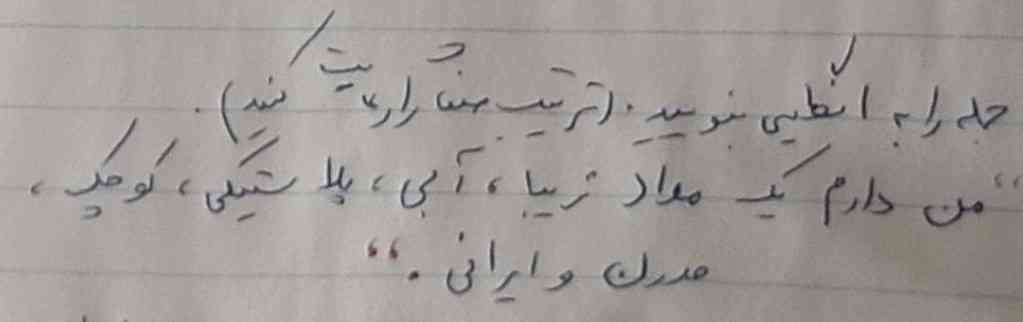 جمله را به انگلیسی بنویسید. (ترتیب صفات را رعایت کنید).
“من دارم یک مداد زیبا، آبی، پلاستیکی، کوچک،
مدرن و ایرانی.“